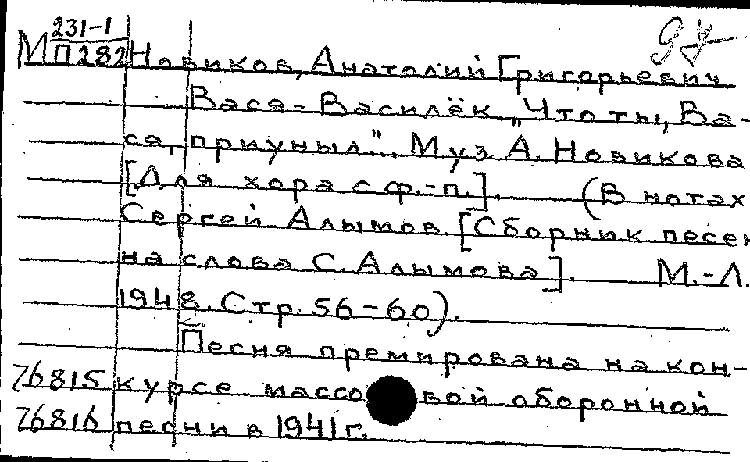 231-1
М П282 Новиков, Анатолий Григорьевич
Вася-Василёк „Что ты, Ва-
ся, приуныл". Муз. А. Новикова
[Для хора с ф.-п.]. (В нотах
Сергей Алымов. [Сборник песен
на слова С. Алымова]. М.-Л.
1948. Стр. 56-60).
Песня премирована на кон-
76815 курсе массовой оборонной
76816 песни в 1941 г.